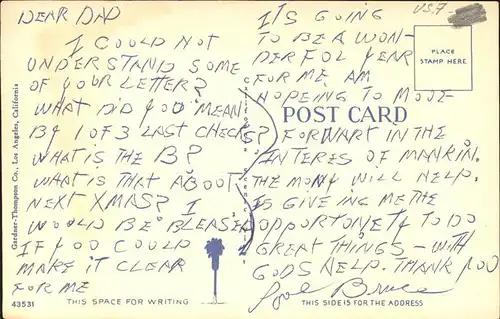 DEAR DAD
I COULD NOT
UNDERSTAND SOME
OF YOUR LETTER?
WHAT DID YOU MEAN
BY 1 OF 3 LAST CHECKS?
WHAT IS THE B?
WHAT IS THAT ABOUT
NEXT XMAS? I
WOULD BE BLEASED
IF YOU COULD
MAKE IT CLEAR
FOR ME
ITS GOING
TO BE A WON-
DERFUL YEAR
FOR ME AM
HOPEING TO MOVE
FORWART IN THE
INTERES OF MANKIN.
THE MONY WILL HELP.
IS GIVEING ME THE
OPPORTONETY TO DO
GREAT THINGS - WITH
GODS HELP. THANK YOU
Bruce
PLACE
STAMP HERE
POST CARD
Gardner-Thompson Co., Los Angeles, California
43531
THIS SPACE FOR WRITING
THIS SIDE IS FOR THE ADDRESS